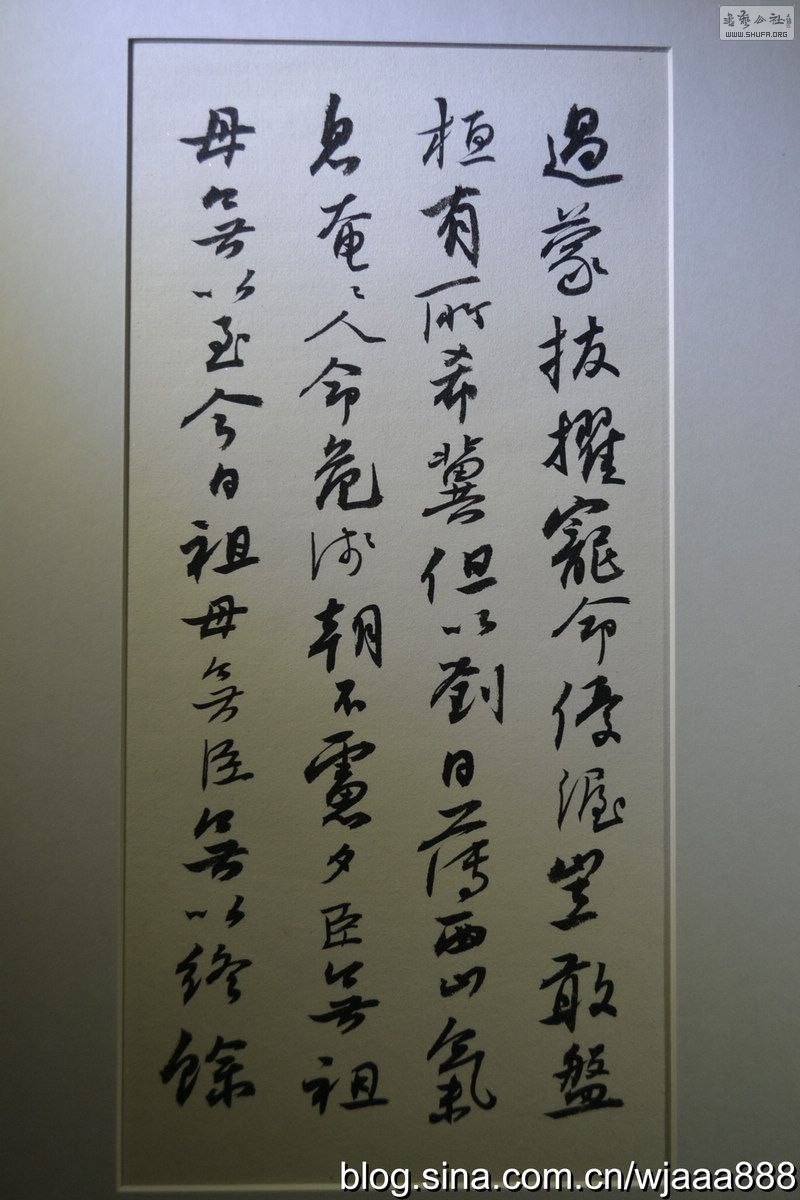 過蒙拔擢寵命優渥豈敢盤
桓有所希冀但以劉日薄西山氣
息奄〻人命危淺朝不慮夕臣無祖
母無以至今日祖母無臣無以終餘
书艺公社
WWW.SHUFA.ORG
blog.sina.com.cn/wjaaa888